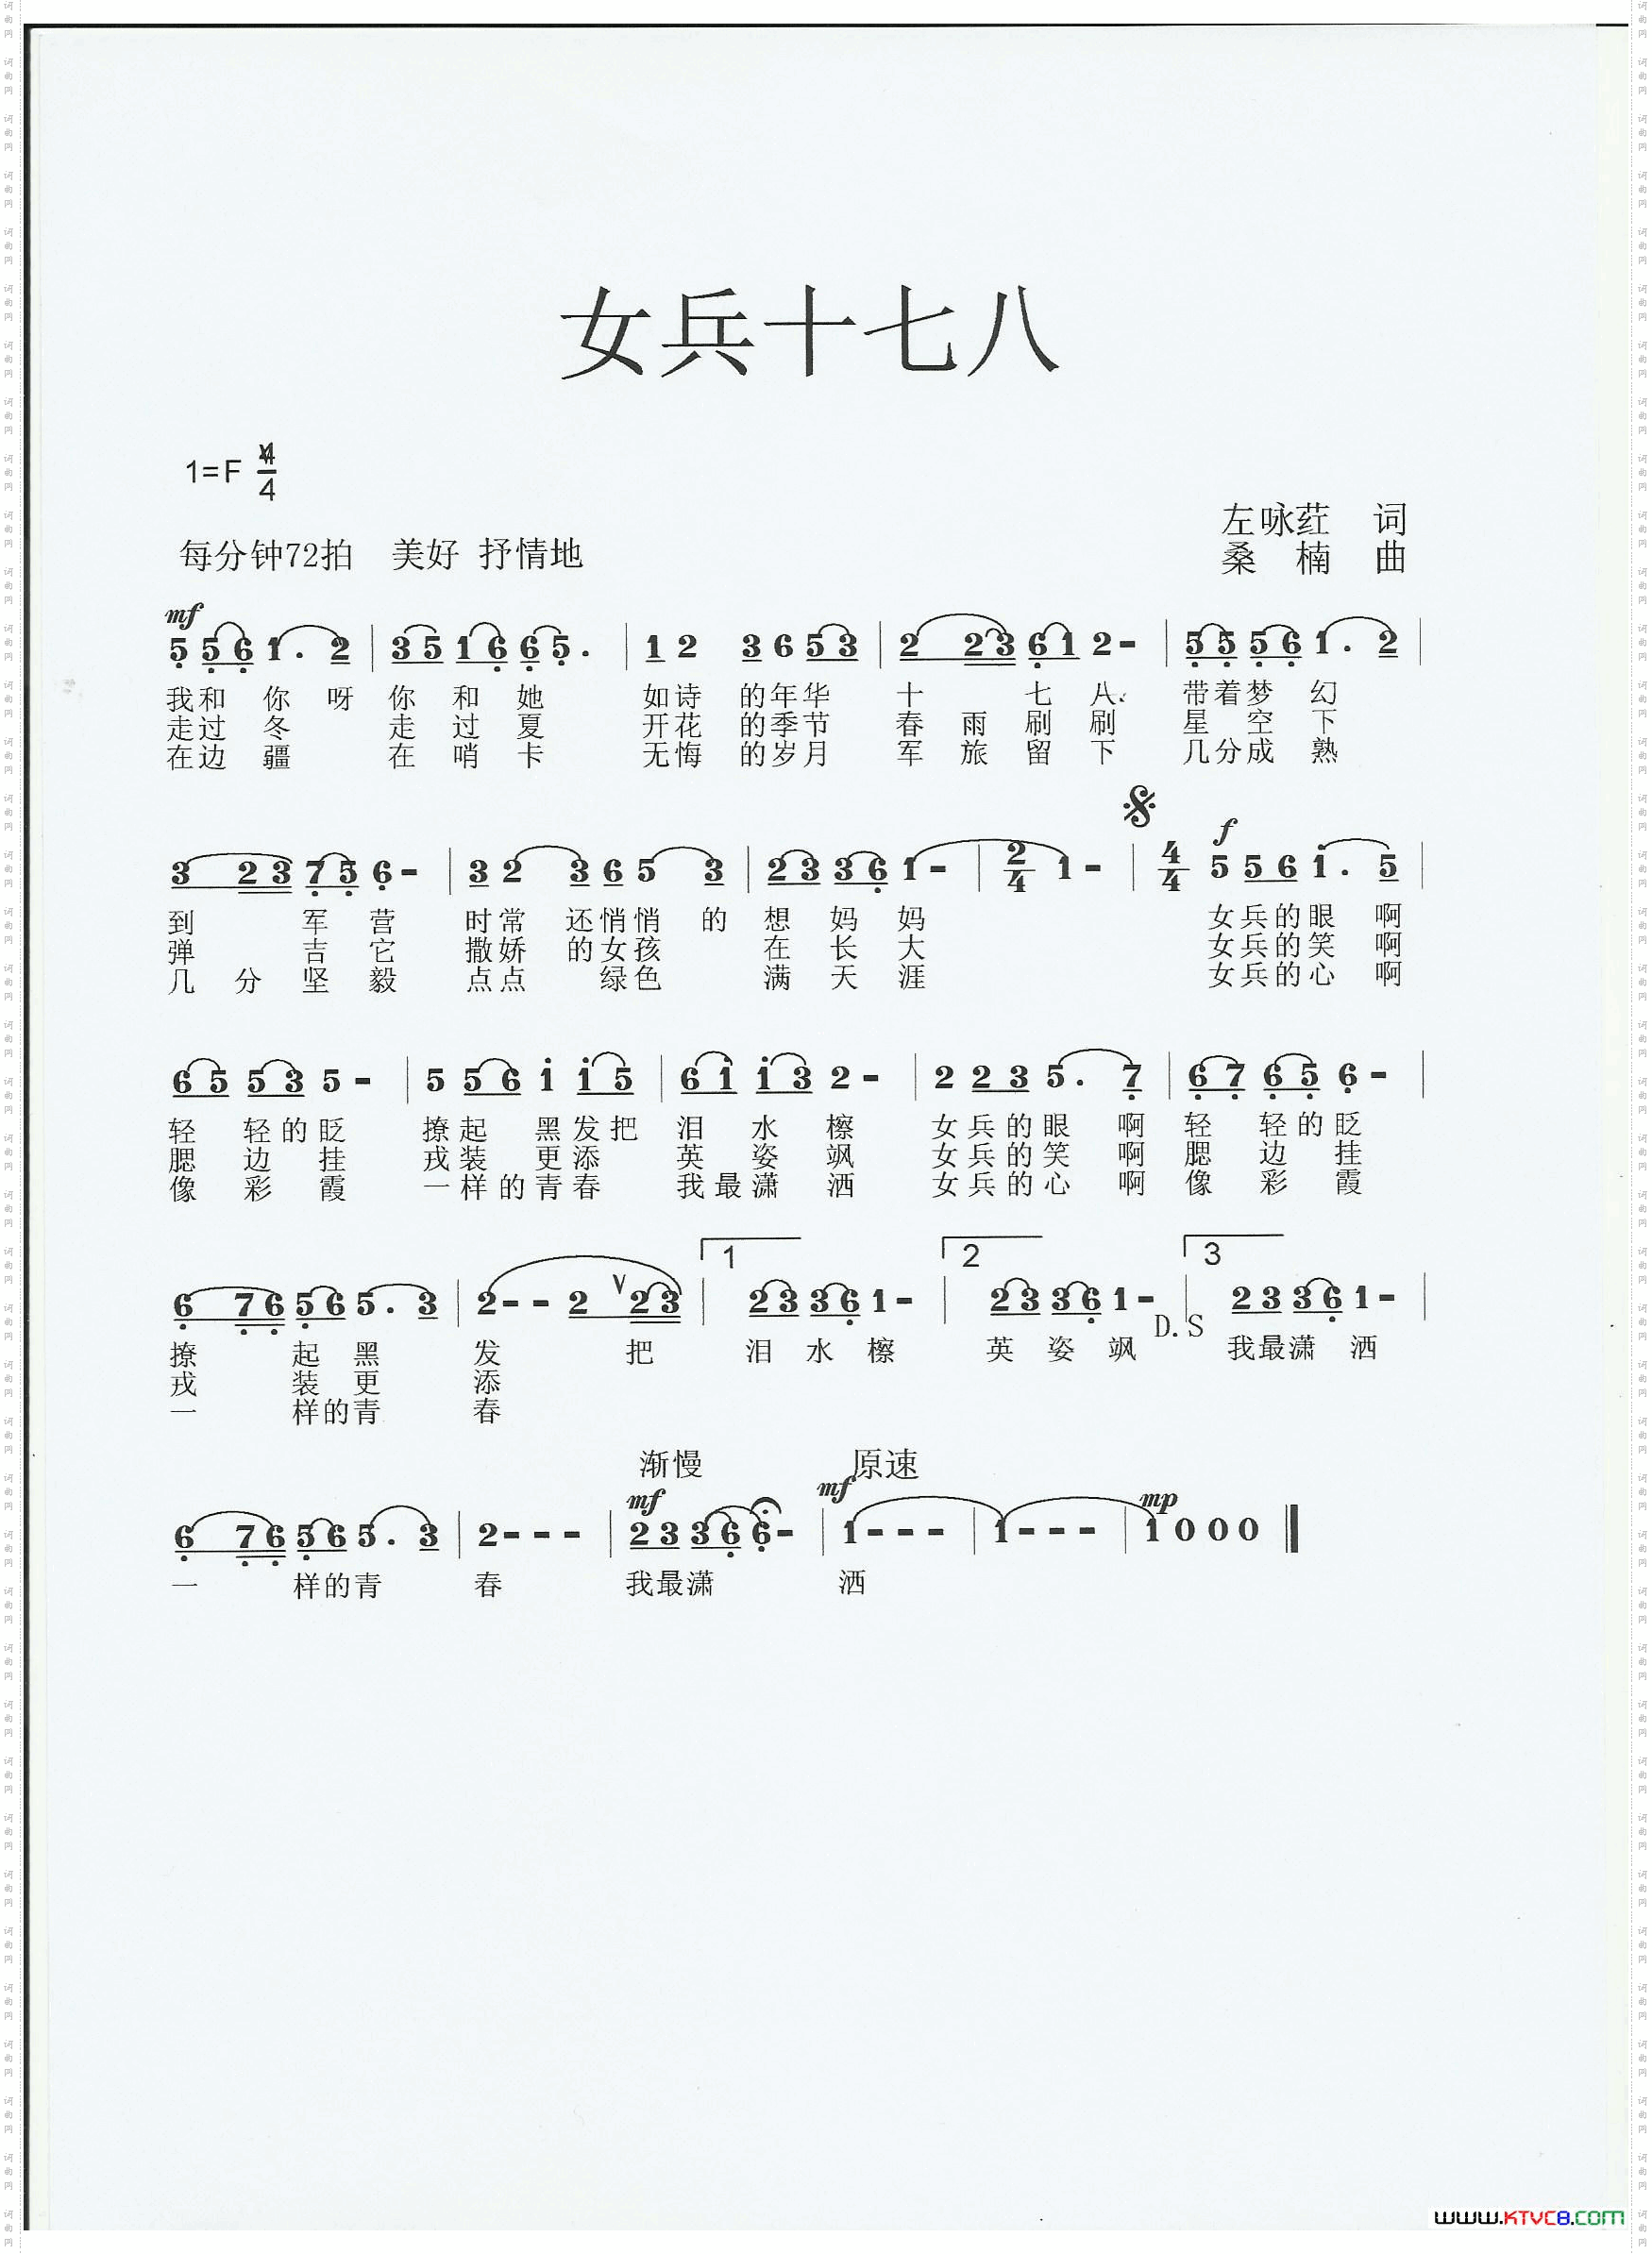 女兵十七八
1=F 4/4
左咏荭 词
每分钟72拍 美好 抒情地
桑 楠 曲
mf
5 5 6 1 . 2 | 3 5 1 6 6 5 . | 1 2 3 6 5 3 | 2 2 3 6 1 2 - | 5 5 5 6 1 . 2 |
我和 你 呀 你 和 她 如诗 的年华 十 七 八 带着梦 幻
走过 冬 走 过 夏 开花 的季节 春 雨 刷 刷 星 空 下
在边 疆 在 哨 卡 无悔 的岁月 军 旅 留 下 几分成 熟
f
3 2 3 7 5 6 - | 3 2 3 6 5 3 | 2 3 3 6 1 - | 2/4 1 - | 4/4 5 5 6 1 . 5 |
到 军 营 时常 还悄悄 的 想 妈 妈 女兵的眼 啊
弹 吉 它 撒娇 的女孩 在 长 大 女兵的笑 啊
几 分 坚 毅 点点 绿色 满 天 涯 女兵的心 啊
6 5 5 3 5 - | 5 5 6 1 1 5 | 6 1 1 3 2 - | 2 2 3 5 . 7 | 6 7 6 5 6 - |
轻 轻的眨 撩起 黑发把 泪 水 檫 女兵的眼 啊 轻 轻的眨
腮 边 挂 戎装 更添 英 姿 飒 女兵的笑 啊 腮 边 挂
像 彩 霞 一样的青春 我最潇 洒 女兵的心 啊 像 彩 霞
1 2 3
6 7 6 5 6 5 . 3 | 2 - - 2 V 2 3 | 2 3 3 6 1 - | 2 3 3 6 1 - | 2 3 3 6 1 - |
D.S
撩 起 黑 发 把 泪 水 檫 英 姿 飒 我最潇 洒
戎 装 更 添
一 样的青 春
渐慢 原速
mf mf mp
6 7 6 5 6 5 . 3 | 2 - - - | 2 3 3 6 6 - | 1 - - - | 1 - - - | 1 0 0 0
一 样的青 春 我最潇 洒
www.KTVC8.COM